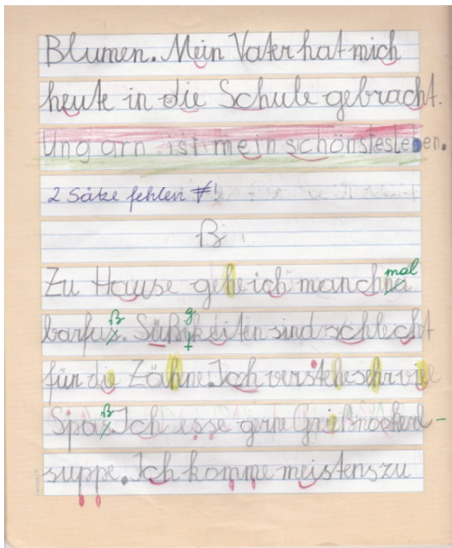 Blumen. Mein Vater hat mich
heute in die Schule gebracht.
Ungarn ist mein schönstesleben.
2 Sätze fehlen
ß
Zu Hause gehe ich manchmal
barfuß. Süßigkeiten sind schlecht
für die Zähne. Ich verstehe sehr viel
Spaß. Ich esse gerne Grießnockerl-
suppe. Ich komme meistens zu